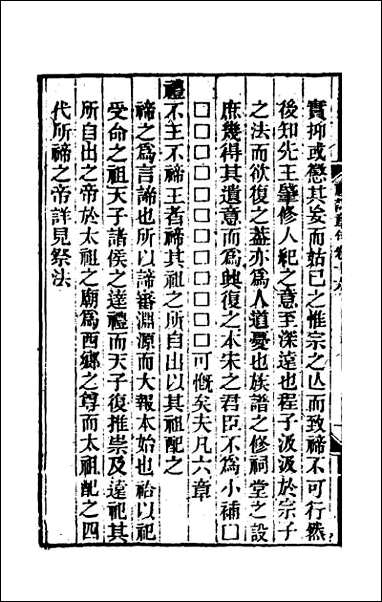 實抑或懲其妄而姑已之惟宗之亾而致禘不可行然
後知先王肇修人紀之意至深遠也程子汲汲於宗子
之法而欲復之葢亦爲人道憂也族譜之修祠堂之設
庶幾得其遺意而爲興復之本宋之君臣不爲小補□
□□□□□□□□□□□□可慨矣夫凡六章
禮不王不禘王者禘其祖之所自出以其祖配之
禘之爲言諦也所以諦審淵源而大報本始也祫以祀
受命之祖天子諸侯之達禮而天子復推崇及遠祀其
所自出之帝於太祖之廟爲西鄉之尊而太祖配之四
代所禘之帝詳見祭法